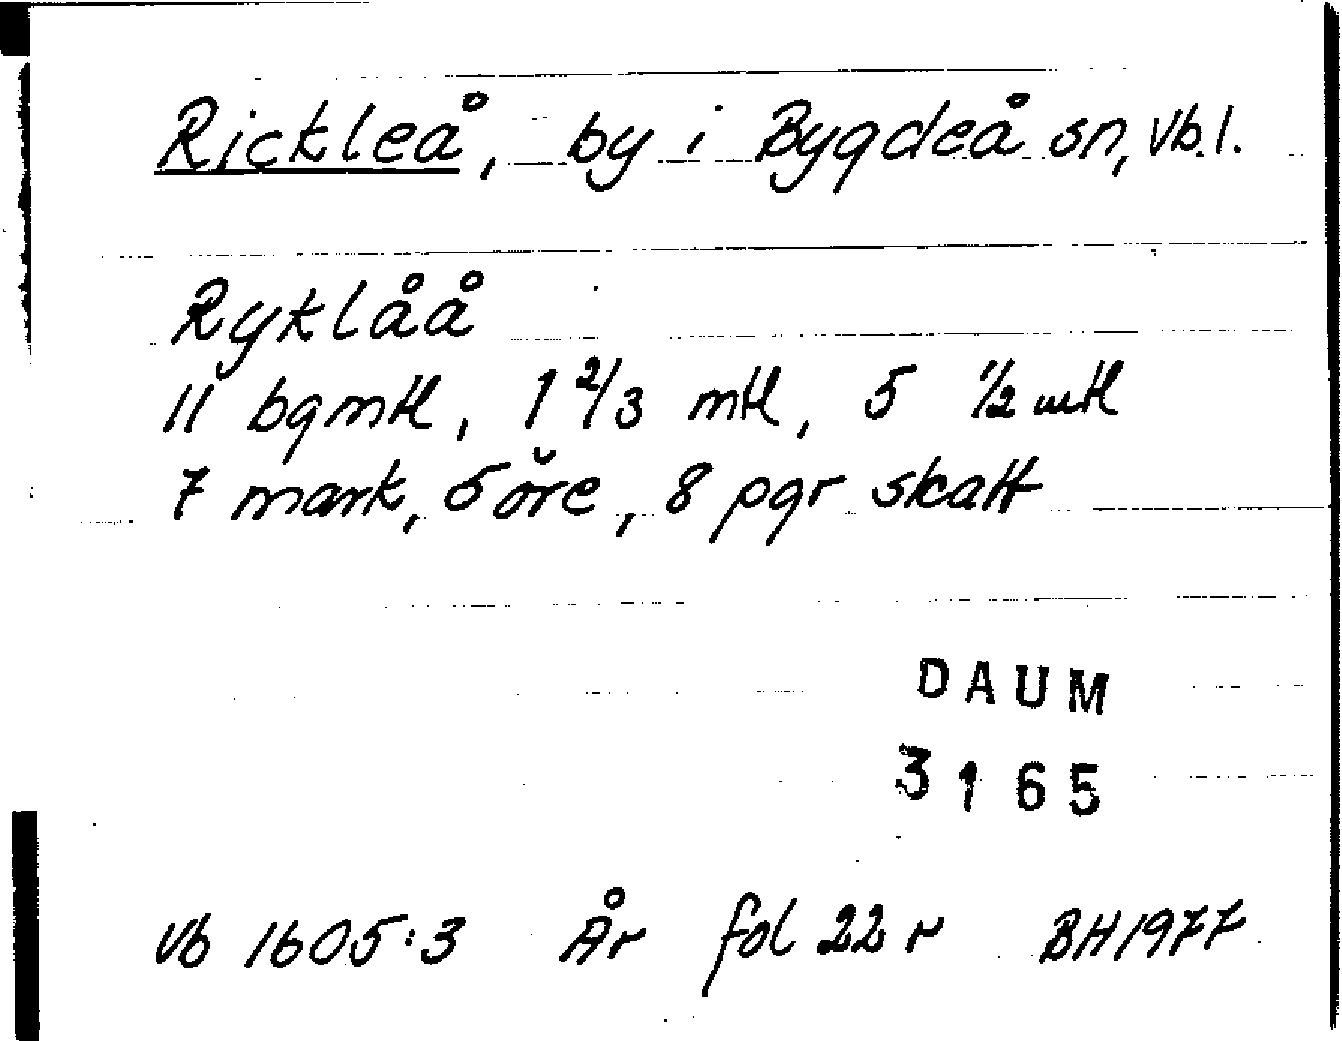 Rickleå, by i Bygdeå sn, Vb.l.
Ryklåå
11 bgmtl, 1 2/3 mtl, 5 1/2 mtl
7 mark, 5 öre, 8 pgr skatt
DAUM
3165
Vb 1605:3 År fol 22 r BH 1977